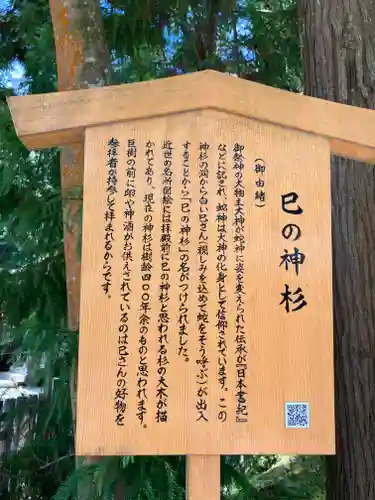 巳の神杉
（御由緒）
御祭神の大物主大神が蛇神に姿を変えられた伝承が『日本書紀』
などに記され、蛇神は大神の化身として信仰されています。この
神杉の洞から白い巳さん（親しみを込めて蛇をそう呼ぶ）が出入
することから「巳の神杉」の名がつけられました。
近世の名所図絵には拝殿前に巳の神杉と思われる杉の大木が描
かれてあり、現在の神杉は樹齢四〇〇年余のものと思われます。
巨樹の前に卵や神酒がお供えされているのは巳さんの好物を
参拝者が持参して拝まれるからです。